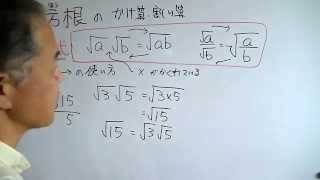 号根のかけ算・割り算
√a √b = √ab  √a/√b = √(a/b)
→の使い方  ×がかくれている
√15/5
√3 √5 = √3×5
= √15
√15 = √3 √5